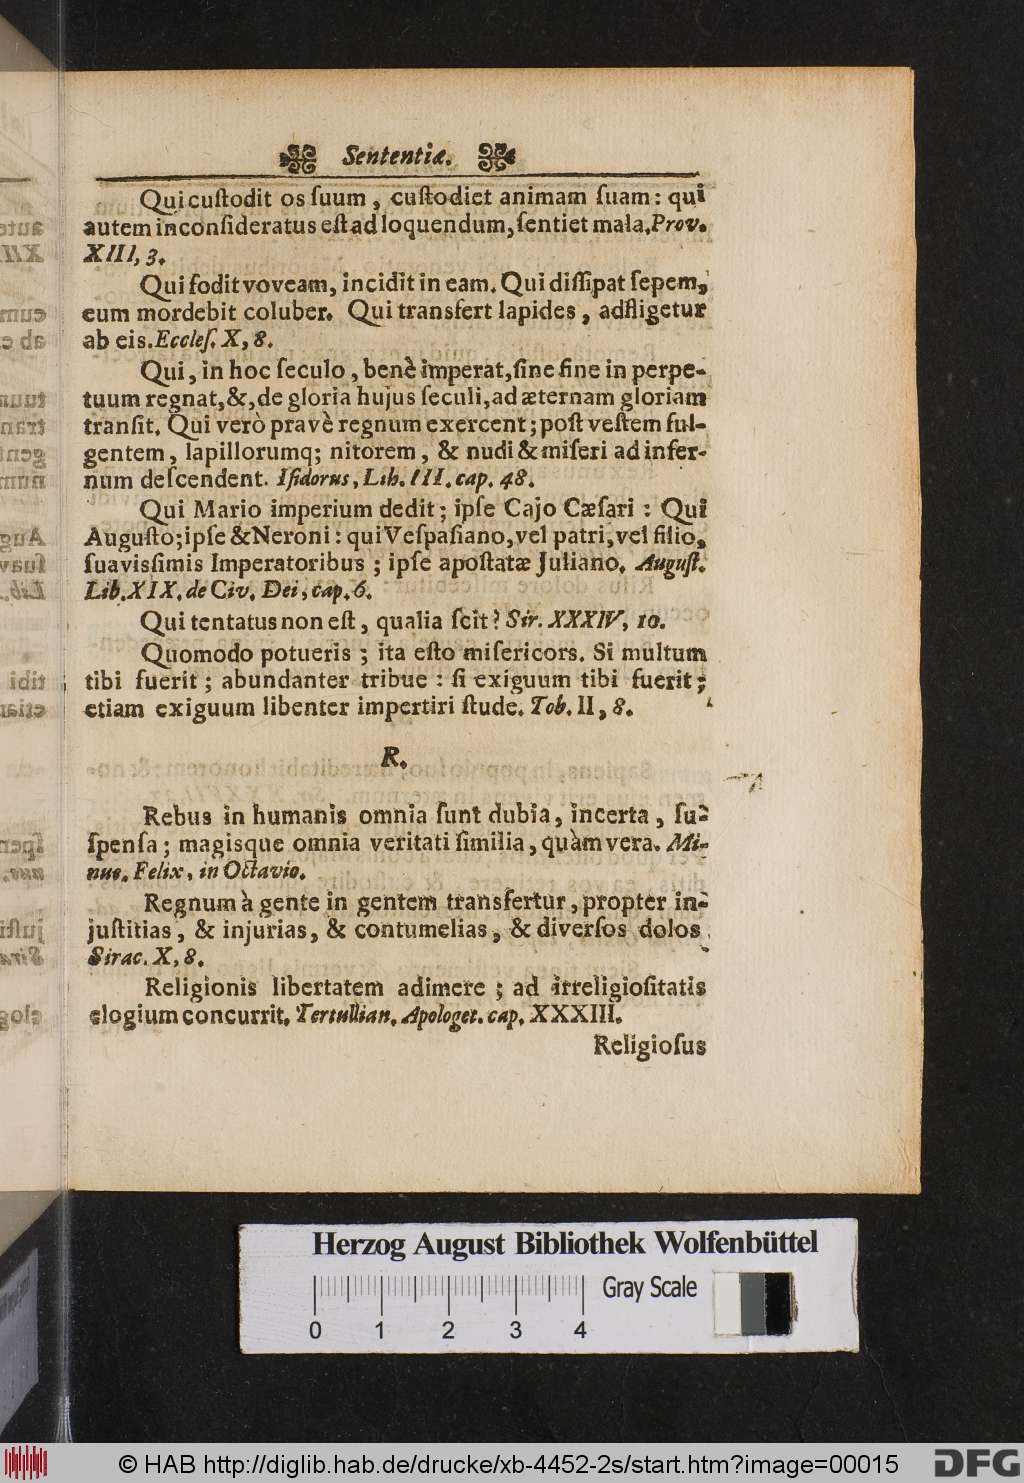 Sententiæ.
Qui cuſtodit os ſuum, cuſtodiet animam ſuam: qui
autem inconſideratus eſt ad loquendum, ſentiet mala. Prov.
XIII, 3.
Qui fodit voveam, incidit in eam. Qui diſſipat ſepem,
eum mordebit coluber. Qui transfert lapides, adfligetur
ab eis. Eccleſ. X, 8.
Qui, in hoc ſeculo, benè imperat, ſine fine in perpe-
tuum regnat, &, de gloria hujus ſeculi, ad æternam gloriam
tranſit. Qui verò pravè regnum exercent; poſt veſtem ful-
gentem, lapillorumq; nitorem, & nudi & miſeri ad infer-
num deſcendent. Iſidorus, Lib. III. cap. 48.
Qui Mario imperium dedit; ipſe Cajo Cæſari: Qui
Auguſto; ipſe & Neroni: qui Veſpaſiano, vel patri, vel filio,
ſuavisſimis Imperatoribus; ipſe apoſtatæ Juliano. Auguſt.
Lib. XIX. de Civ. Dei, cap. 6.
Qui tentatus non eſt, qualia ſcit? Sir. XXXIV, 10.
Quomodo potueris; ita eſto miſericors. Si multum
tibi fuerit; abundanter tribue: ſi exiguum tibi fuerit;
etiam exiguum libenter impertiri ſtude. Tob. II, 8.
R.
Rebus in humanis omnia ſunt dubia, incerta, ſu-
ſpenſa; magisque omnia veritati ſimilia, quàm vera. Mi-
nuc. Felix, in Octavio.
Regnum à gente in gentem transfertur, propter in-
juſtitias, & injurias, & contumelias, & diverſos dolos.
Sirac. X, 8.
Religionis libertatem adimere; ad irreligioſitatis
elogium concurrit. Tertullian. Apologet. cap. XXXIII.
Religioſus
Herzog August Bibliothek Wolfenbüttel
Gray Scale
0 1 2 3 4
© HAB http://diglib.hab.de/drucke/xb-4452-2s/start.htm?image=00015
DFG